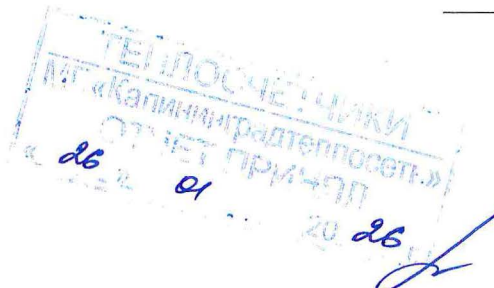 ТЕПЛОСЧЕТЧИКИ
МП «Калининградтеплосеть»
ОТЧЕТ ПРИНЯЛ
« 26 » 01 20 26 г.